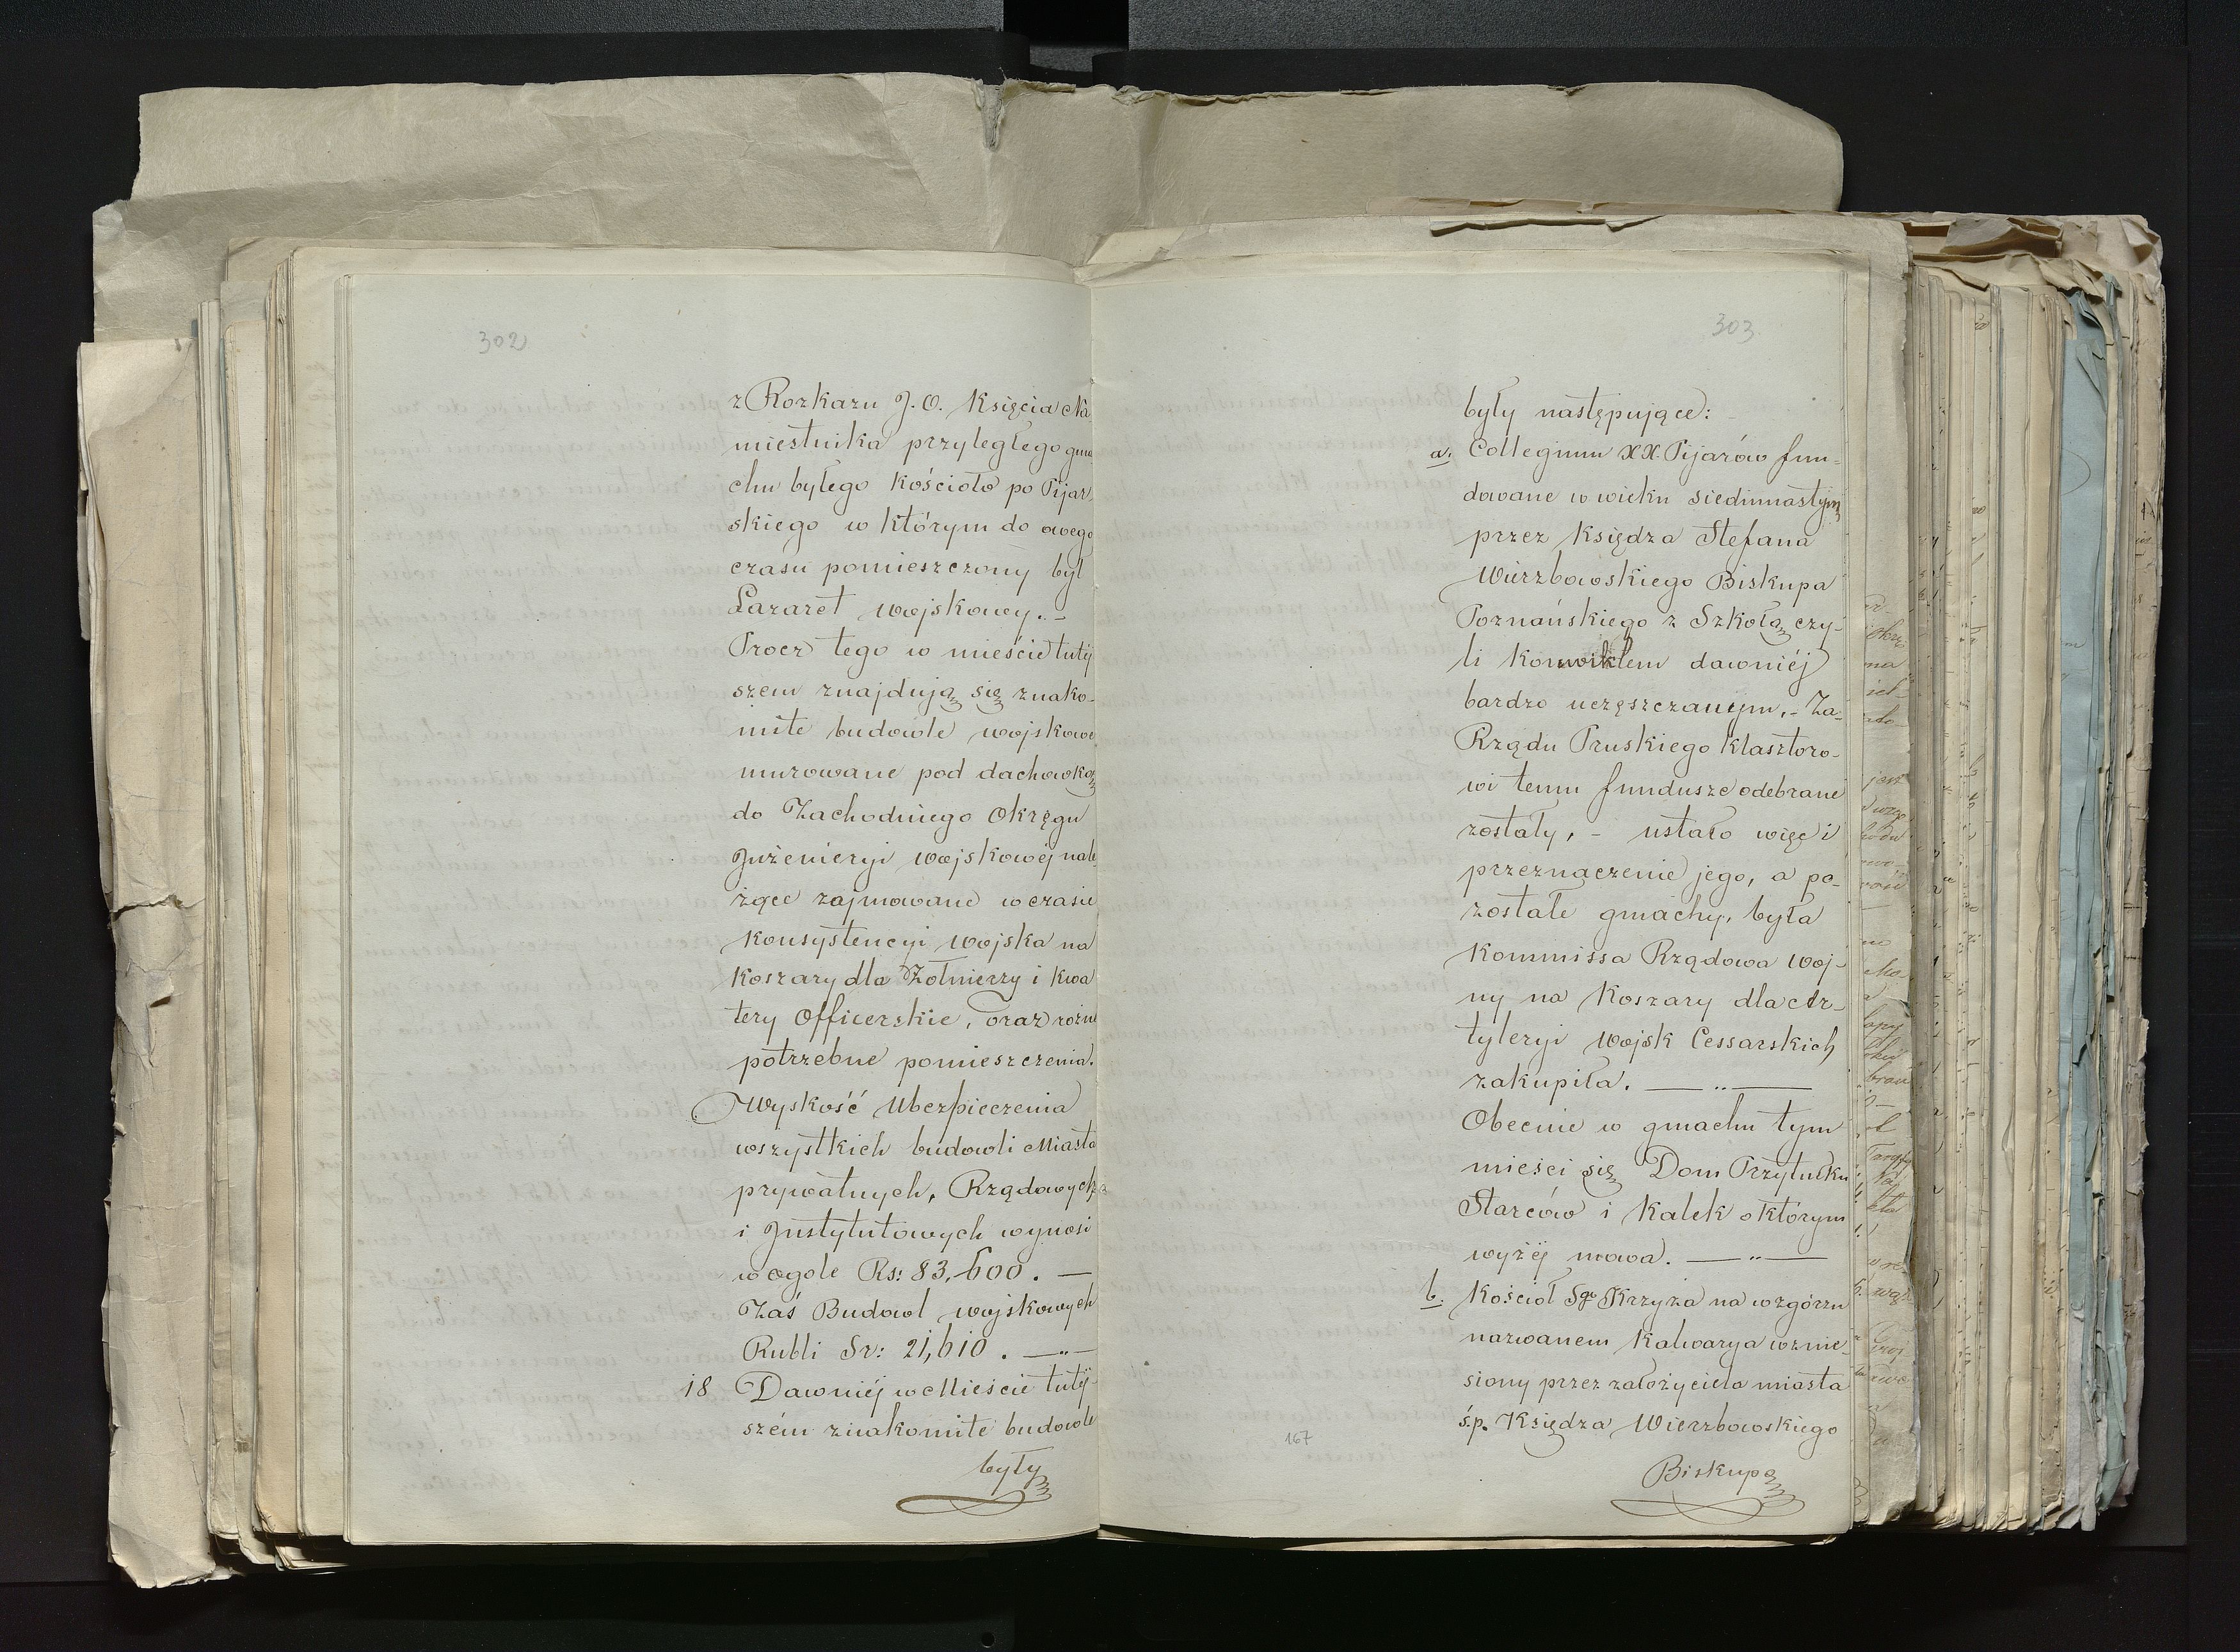 302
z Rozkazu J. O. Księcia Na
miestnika przyległego gma
chu byłego Kościoło po Pijar
skiego w którym do owego
czasu pomieszczony był
Lazaret wojskowy. –
Procz tego w mieście tutej
szem znajdują się znako-
mite budowle wojskowe
murowane pod dachowką
do Zachodniego Okręgu
Inżenieryi wojskowéj nale-
żące zajmowane w czasie
konsystencyi wojska na
Koszary dla Żołnierzy i kwa
tery Officerskie, oraz rożne
potrzebne pomieszczenia.
Wyskość Ubezpieczenia
wszystkich budowli Miasta
prywatnych, Rządowych
i Instytutowych wynosi
w ogole Rs: 83,600. —
Zaś Budowl wojskowych
Rubli Sr: 21,610. — „ —
18 Dawniéj w Mieście tutéj-
szém znakomite budowle
były
303
były następujące:
a. Collegium XX. Pijarów fun-
dowane w wieku siedmnastym
przez Księdza Stefana
Wierzbowskiego Biskupa
Poznańskiego z Szkołą czy-
li konwiktem dawniéj
bardzo uczęszczanym. – Za-
Rządu Pruskiego klasztoro-
wi temu fundusze odebrane
zostały, – ustało więc i
przeznaczenie jego, a po-
zostałe gmachy, była
Kommissa Rządowa Woj-
ny na Koszary dla Ar-
tyleryi wojsk Cessarskich
zakupiła. — „ —
Obecnie w gmachu tym
mieści się Dom Przytułku
Starców i Kalek o którym
wyżéj mowa. — „ —
b. Kościoł Sgo Krzyża na wzgórzu
nazwanem Kalwarya wznie-
siony przez założyciela miasta
ś.p. Księdza Wierzbowskiego
Biskupa
167